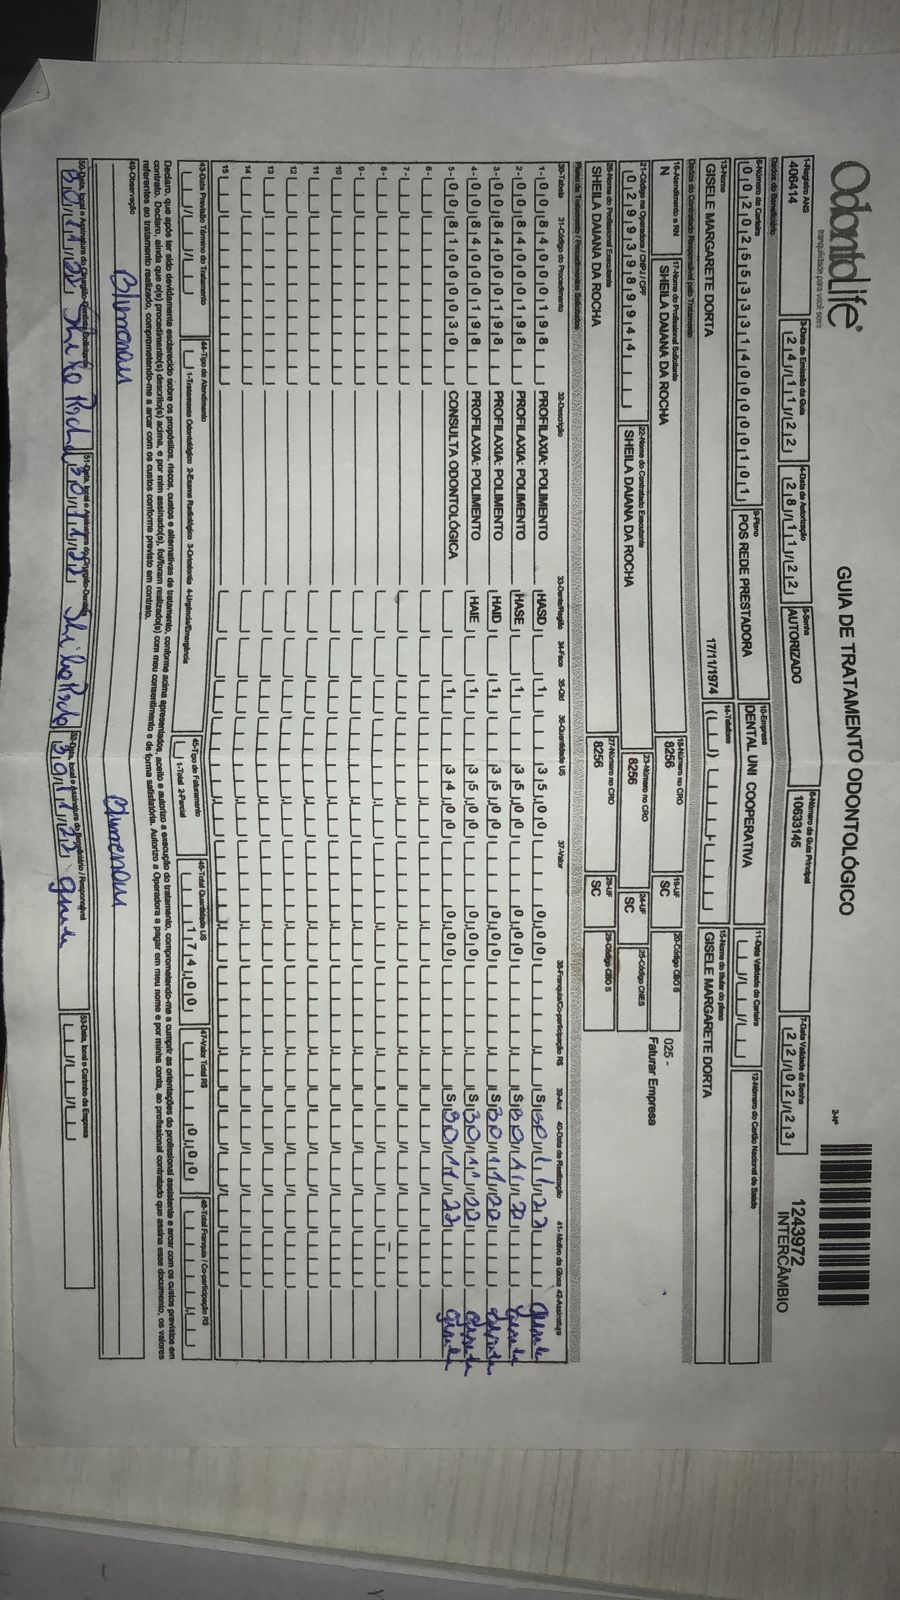 OdontoLife®
tranquilidade para você sorrir
GUIA DE TRATAMENTO ODONTOLÓGICO
2-Nº
1243972
INTERCÂMBIO
1-Registro ANS 3-Data de Emissão da Guia 4-Data de Autorização 5-Senha 6-Número da Guia Principal 7-Data Validade da Senha
406414 24/11/22 28/11/22 AUTORIZADO 10633145 22/02/23
Dados do Beneficiário
8-Número da Carteira 9-Plano 10-Empresa 11-Data Validade da Carteira 12-Número do Cartão Nacional de Saúde
POS REDE PRESTADORA DENTAL UNI COOPERATIVA
13-Nome 14-Telefone 15-Nome do titular do plano
GISELE MARGARETE DORTA 17/11/1974 GISELE MARGARETE DORTA
Dados do Contratado Responsável pelo Tratamento
16-Atendimento a RN 17-Nome do Profissional Solicitante 18-Número no CRO 19-UF 20-Código CBO S
N SHEILA DAIANA DA ROCHA 8256 SC
025 -
Faturar Empresa
21-Código na Operadora / CNPJ / CPF 22-Nome do Contratado Executante 23-Número no CRO 24-UF 25-Código CNES
02993989944 SHEILA DAIANA DA ROCHA 8256 SC
26-Nome do Profissional Executante 27-Número no CRO 28-UF 29-Código CBO S
SHEILA DAIANA DA ROCHA 8256 SC
Plano de Tratamento / Procedimentos Solicitados
30-Tabela 31-Código do Procedimento 32-Descrição 33-Dente/Região 34-Face 35-Qtd 36-Quantidade US 37-Valor 38-Franquia/Co-participação R$ 39-Aut 40-Data de Realização 41-Motivo da Glosa 42-Assinatura
1- 00 84000198 PROFILAXIA: POLIMENTO HASD 1 35,00 0,00 S
2- 00 84000198 PROFILAXIA: POLIMENTO HASE 1 35,00 0,00 S
3- 00 84000198 PROFILAXIA: POLIMENTO HAID 1 35,00 0,00 S 30/11/22
4- 00 84000198 PROFILAXIA: POLIMENTO HAIE 1 35,00 0,00 S 30/11/22
5- 00 81000030 CONSULTA ODONTOLÓGICA 1 34,00 0,00 S 30/11/22
6-
7-
8-
9-
10
11
12
13
14
15
43-Data Previsão Término do Tratamento 44-Tipo de Atendimento 45-Tipo de Faturamento 46-Total Quantidade US 47-Valor Total R$ 48-Total Franquia / Co-participação R$
1-Tratamento Odontológico 2-Exame Radiológico 3-Ortodontia 4-Urgência/Emergência 1-Total 2-Parcial 174,00 0,00
Declaro, que após ter sido devidamente esclarecido sobre os propósitos, riscos, custos e alternativas de tratamento, conforme acima apresentados, aceito e autorizo a execução do tratamento, comprometendo-me a cumprir as orientações do profissional assistente e arcar com os custos previstos em
contrato. Declaro, ainda que o(s) procedimento(s) descrito(s) acima, e por mim assinado(s), foi/foram realizado(s) com meu consentimento e de forma satisfatória. Autorizo a Operadora a pagar em meu nome e por minha conta, ao profissional contratado que assina esse documento, os valores
referentes ao tratamento realizado, comprometendo-me a arcar com os custos conforme previsto em contrato.
49-Observação
Blumenau Blumenau
50-Data, local e Assinatura do Cirurgião-Dentista Solicitante 51-Data, local e Assinatura do Cirurgião-Dentista 52-Data, local e Assinatura do Beneficiário / Responsável 53-Data, local e Carimbo da Empresa
30/11/22 30/11/22 30/11/22